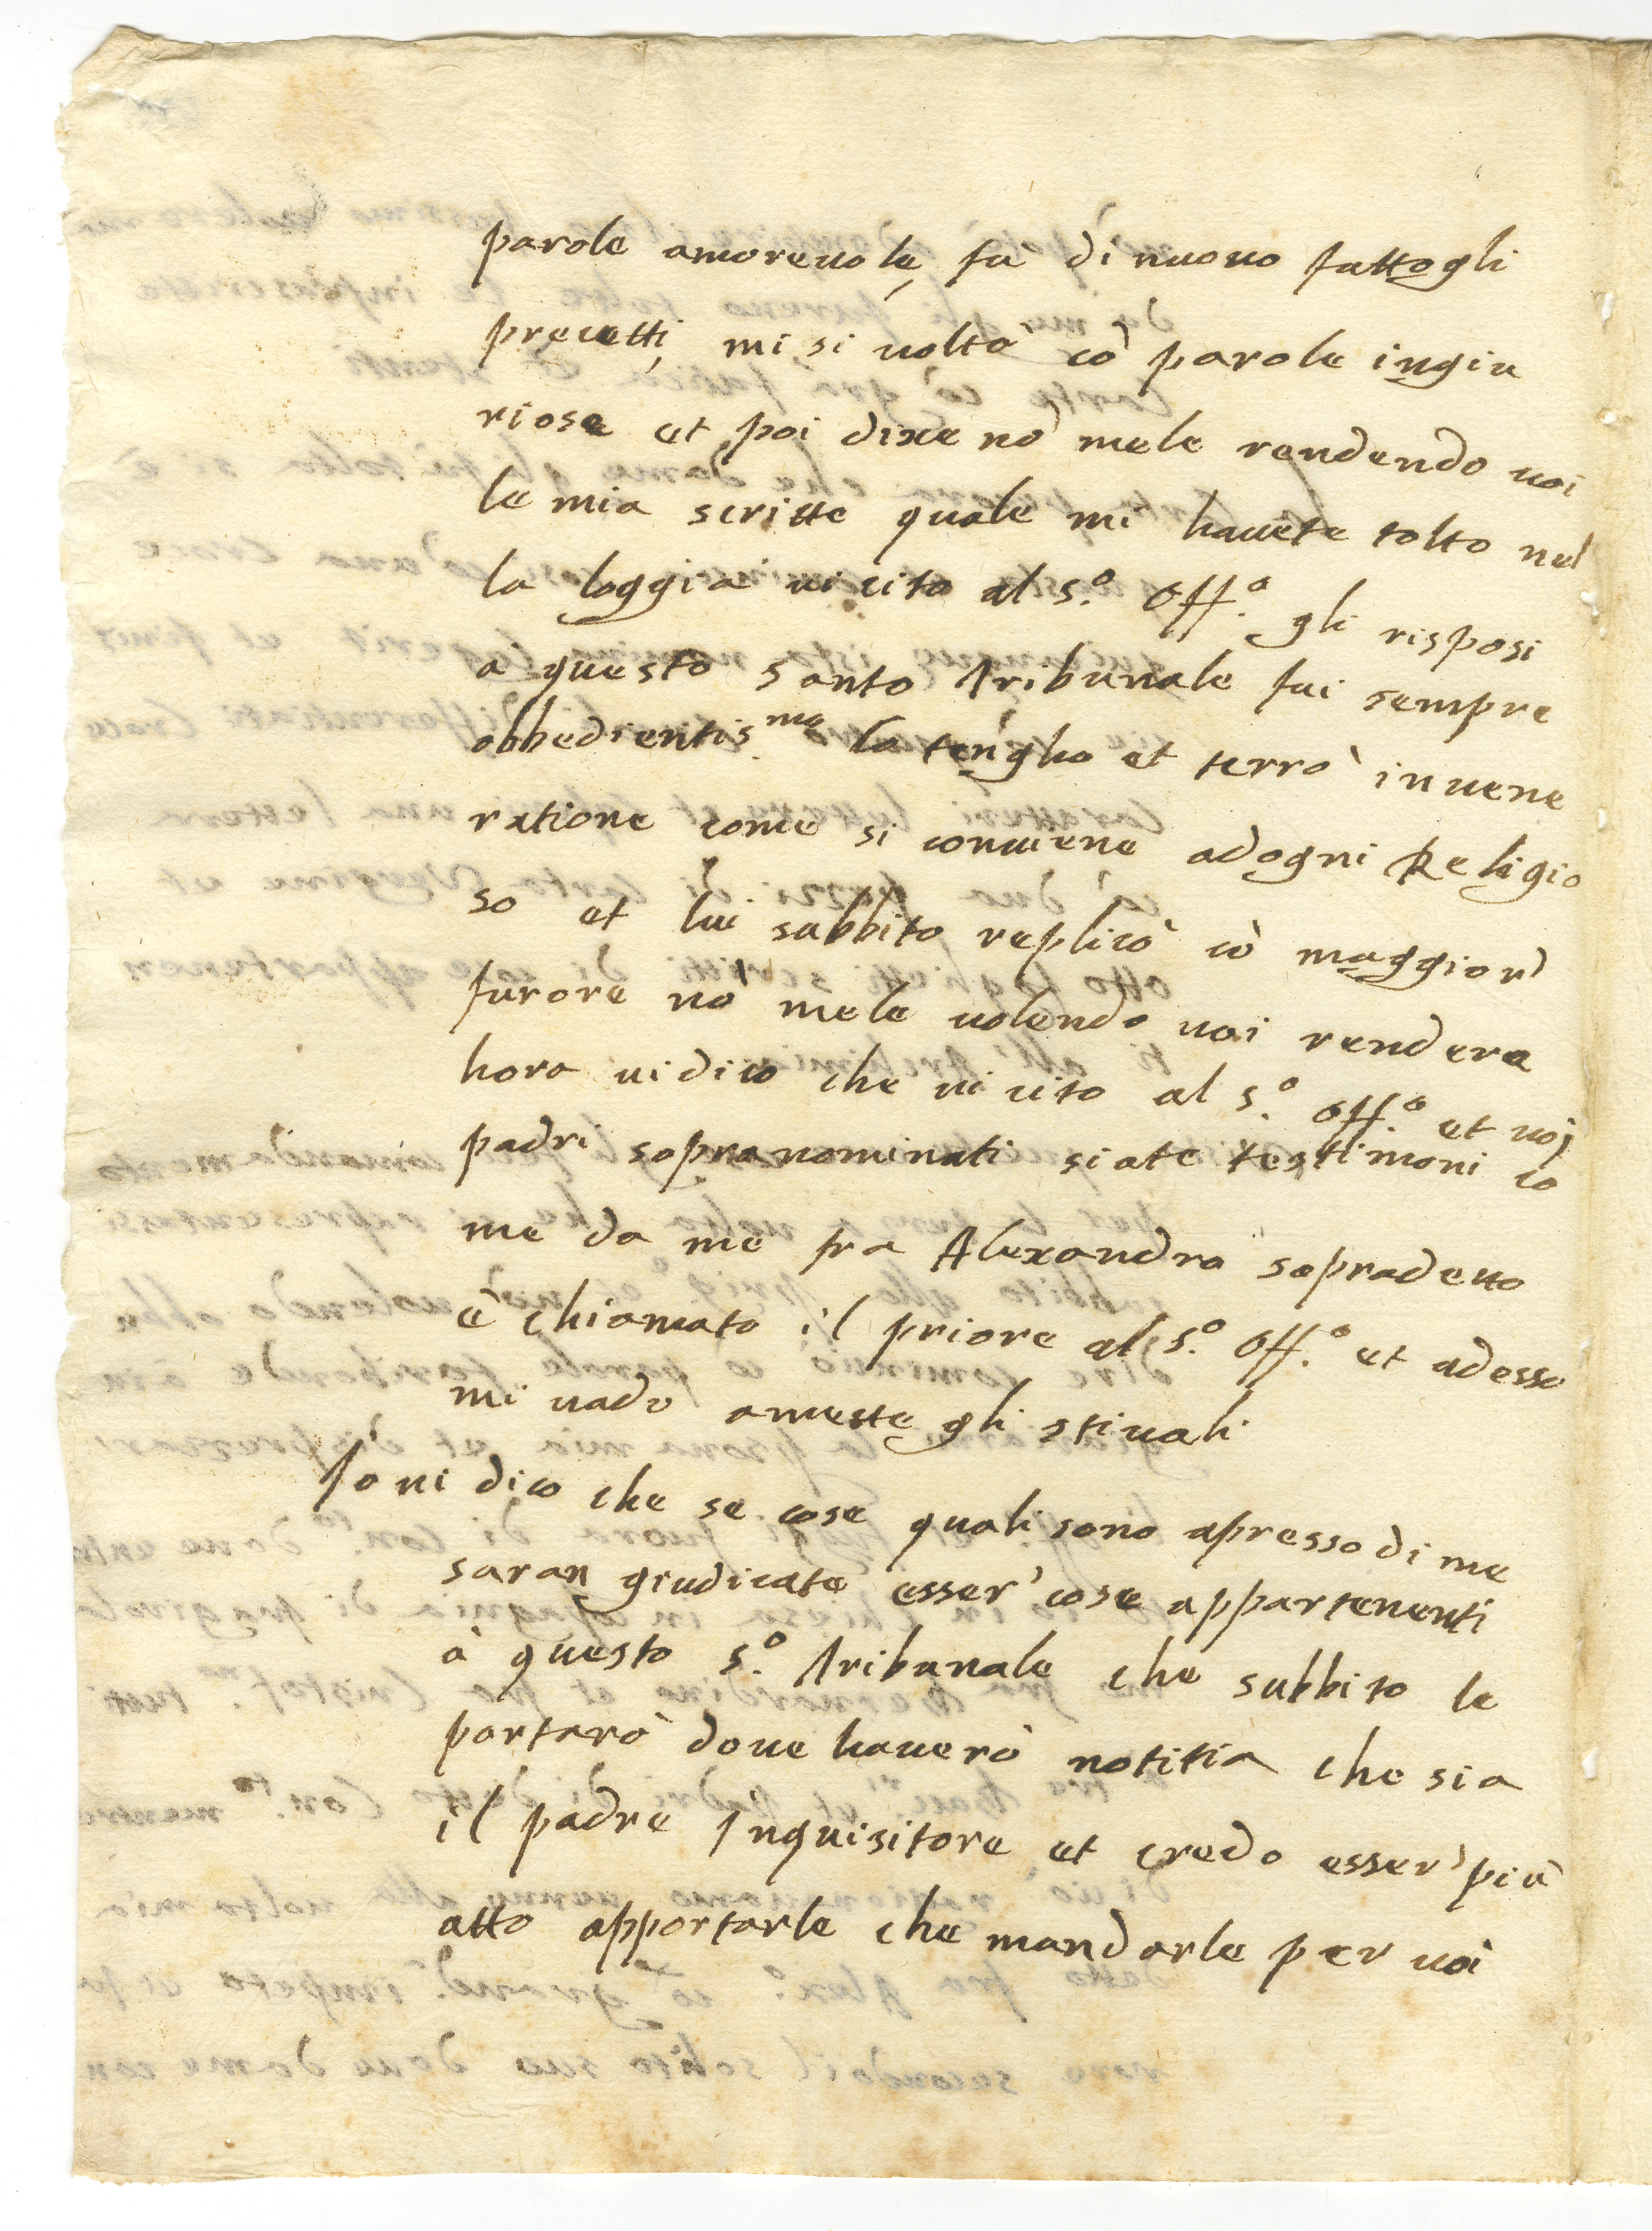 parole amoreuole, fu di nuouo fattogli
precetti, mi si uoltò cō parole ingiu
riose et poi dixe nō mele rendendo uoi
le mia scritte quale mi hauete tolto nel
la loggia ui cito al s.º off.º gli risposi
a questo santo tribunale fui sempre
obbedientis.mo lo tengho et terrò in uene
ratione come si conuiene adogni Religio
so et lui subbito replicò cō maggior'
furore nō mele uolendo uoi rendere
hora ui dico che ui cito al s.º off.º et uoj
padri sopranominati siate testimoni co
me da me fra Alexandro sopradetto
è chiamato il priore al s.º off.º et adesso
mi uado amette gli stiuali
Io ui dico che se cose quali sono apresso di me
saran giudicate esser' cose appartenenti
à questo s.º tribunale che subbito le
portarò doue hauerò notitia che sia
il padre Inquisitore et credo esser' più
atto apportarle che mandarle per uoi